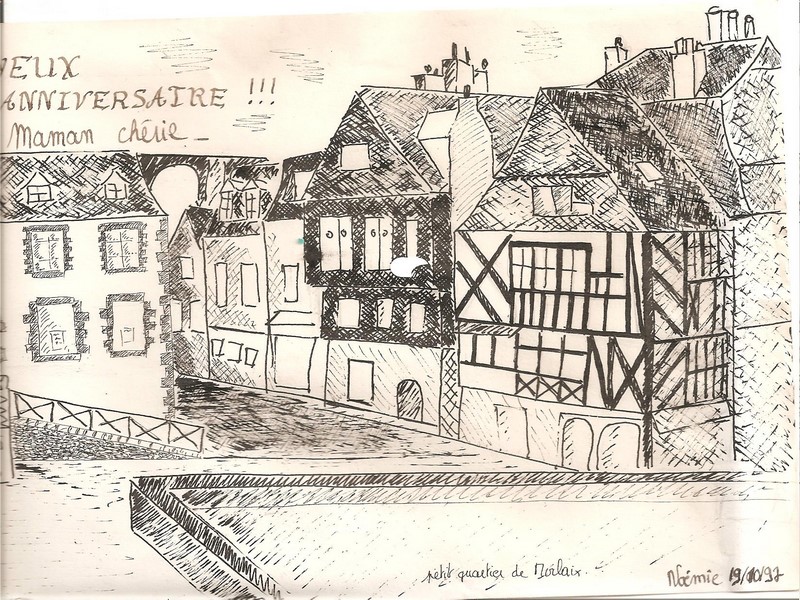 EUX
ANNIVERSAIRE !!!
Maman chérie _
petit quartier de Morlaix.
Noémie 19/10/97